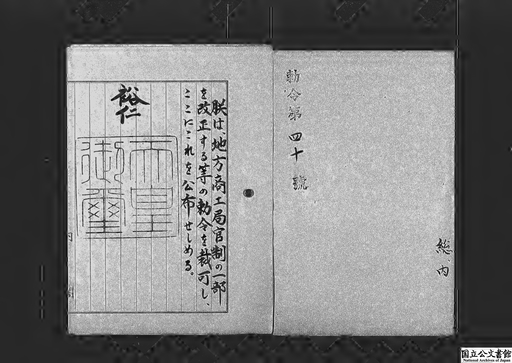 勅令第四十號
総、内
朕は、地方商工局官制の一部
を改正する等の勅令を裁可し、
ここにこれを公布せしめる。
裕仁
天皇御璽
国立公文書館
National Archives of Japan